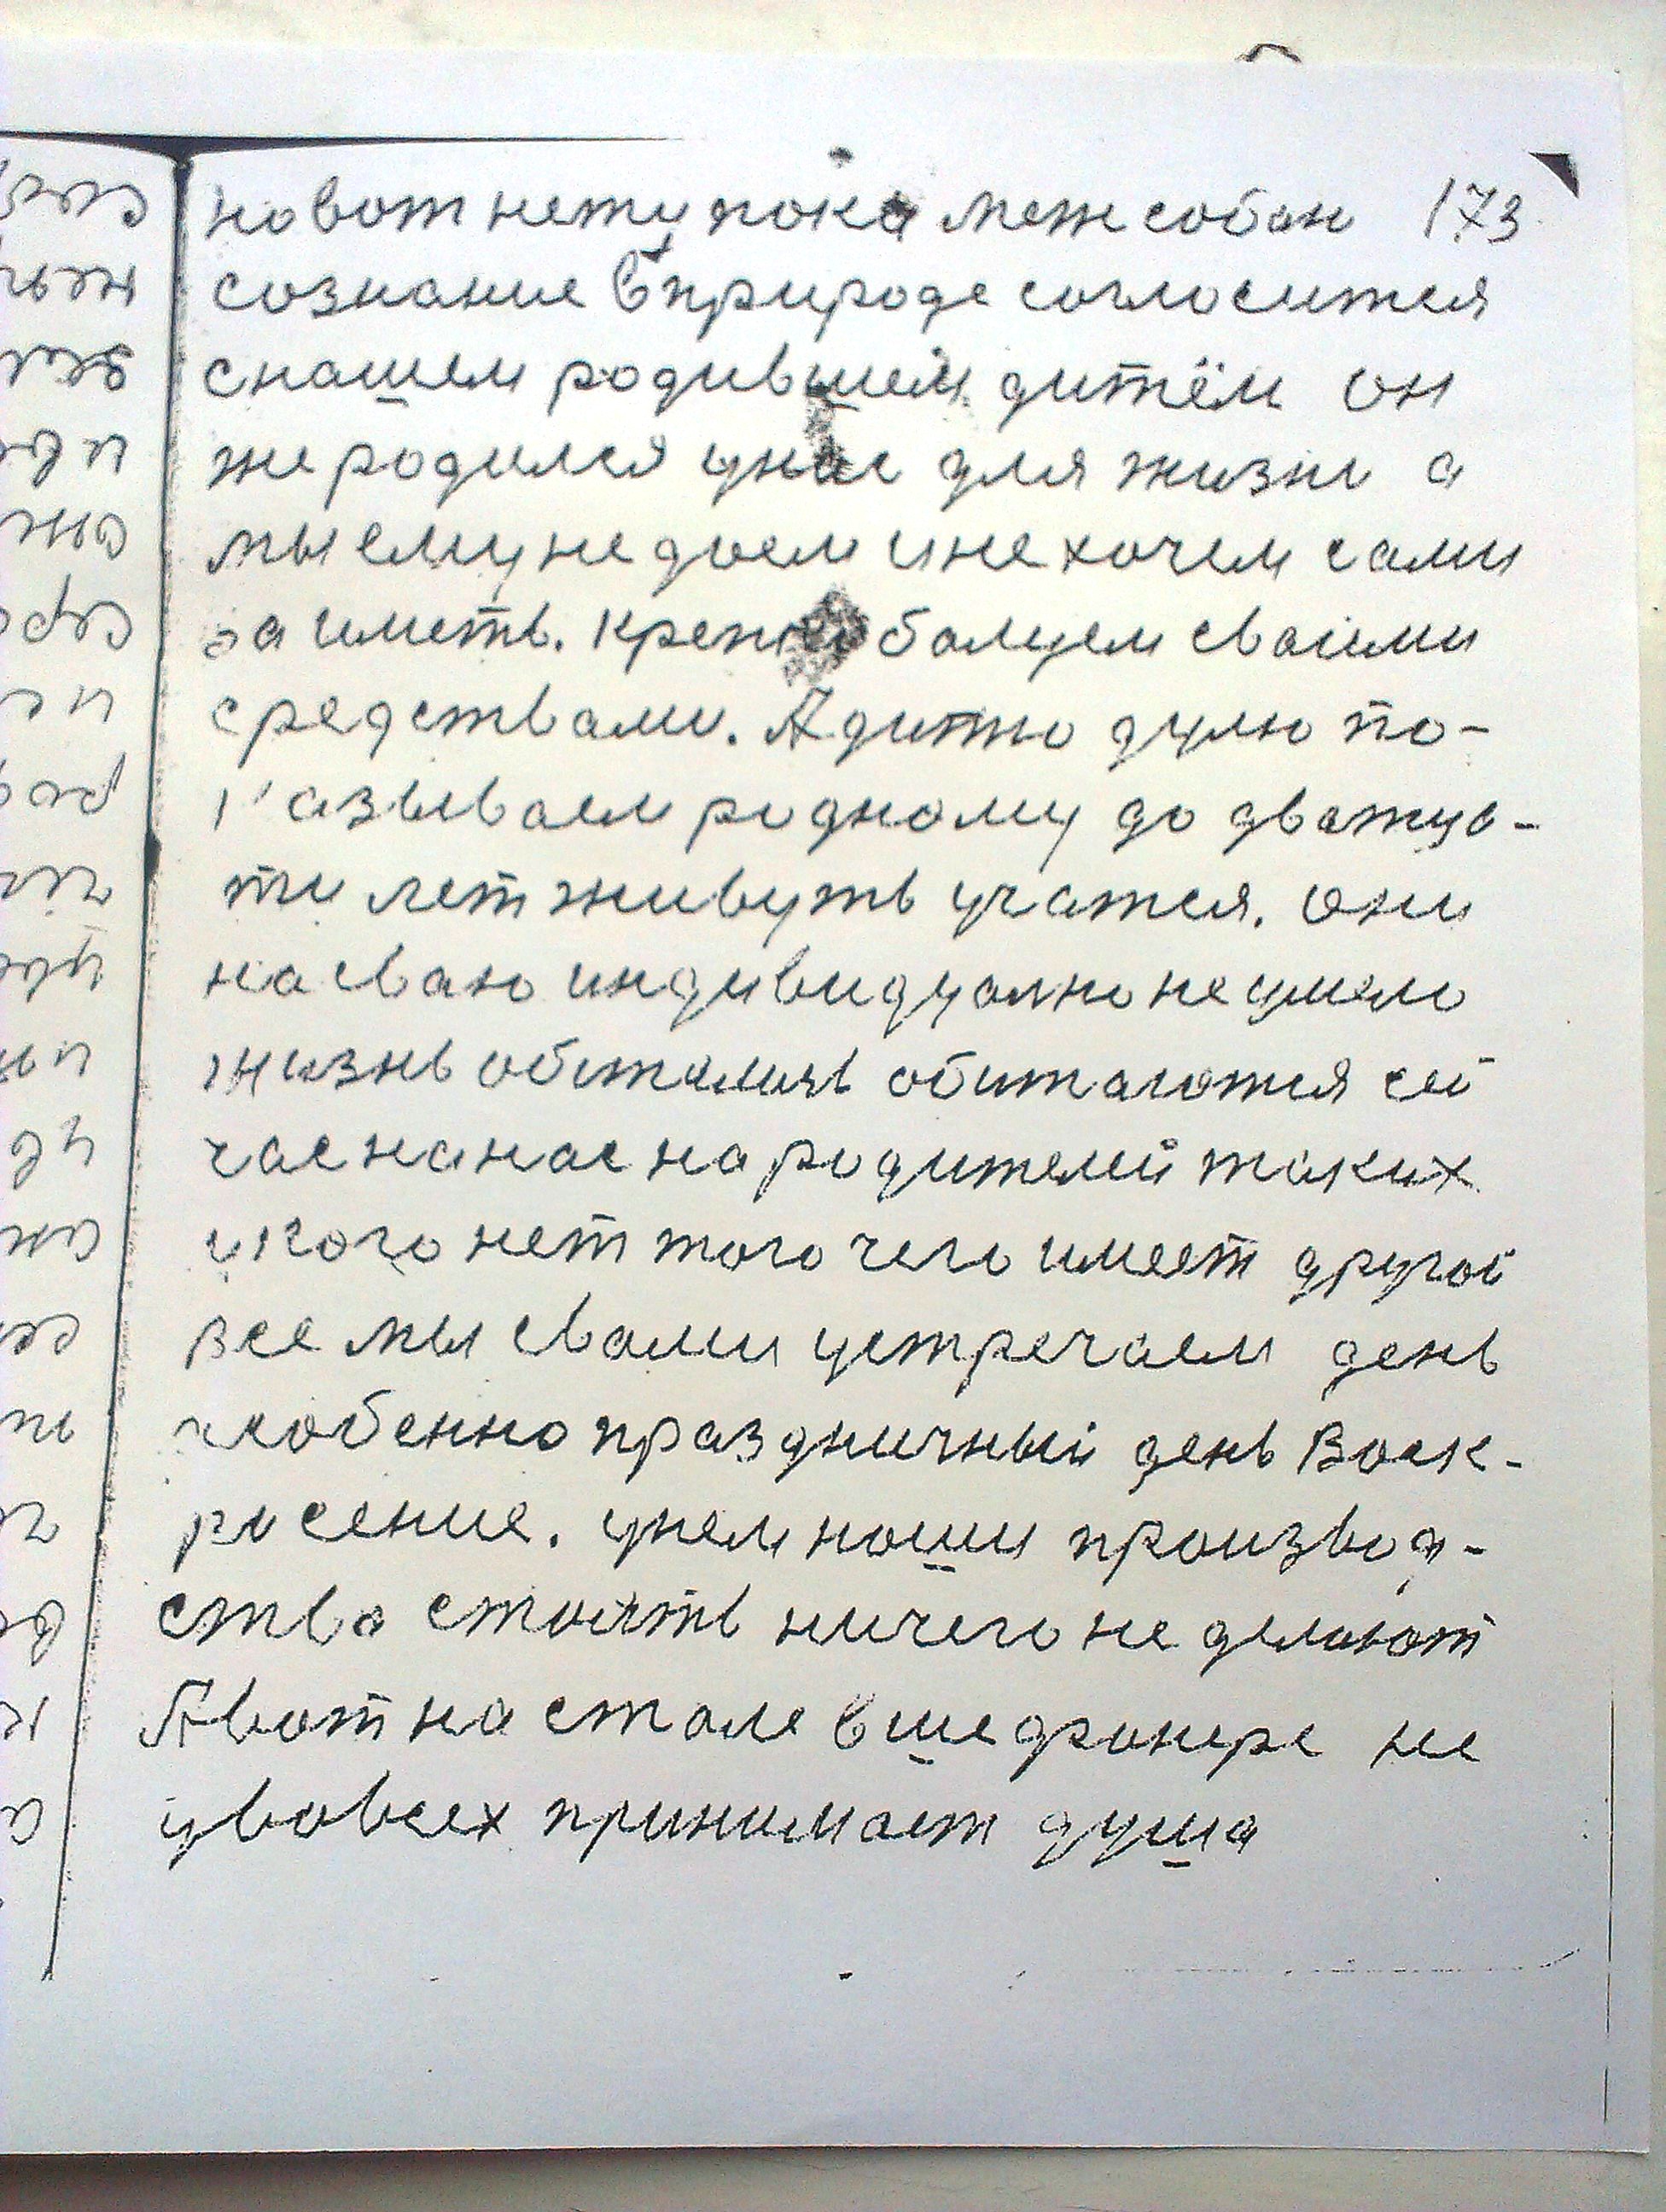 но вот нету пока меж собой 173
сознание в природе согласится
с нашем родившем дитём он
же родился у нас для жизни а
мы ему не даем и не хочем сами
за иметь. Крепко балуем сваими
средствами. А дитю дулю по-
казываем родному до дватца-
ти лет живуть учатся. они
на сваю индивидуално не умело
жизнь обитались обитаются сей
час на нас на родителей таких
у кого нет того чего имеет другой
все мы с вами устречаем день
особенно праздничный день Воск-
ресение. у нем наши производ-
ства стоять ничего не делают
А вот на столе в шедфонере не
у во всех принимает душа